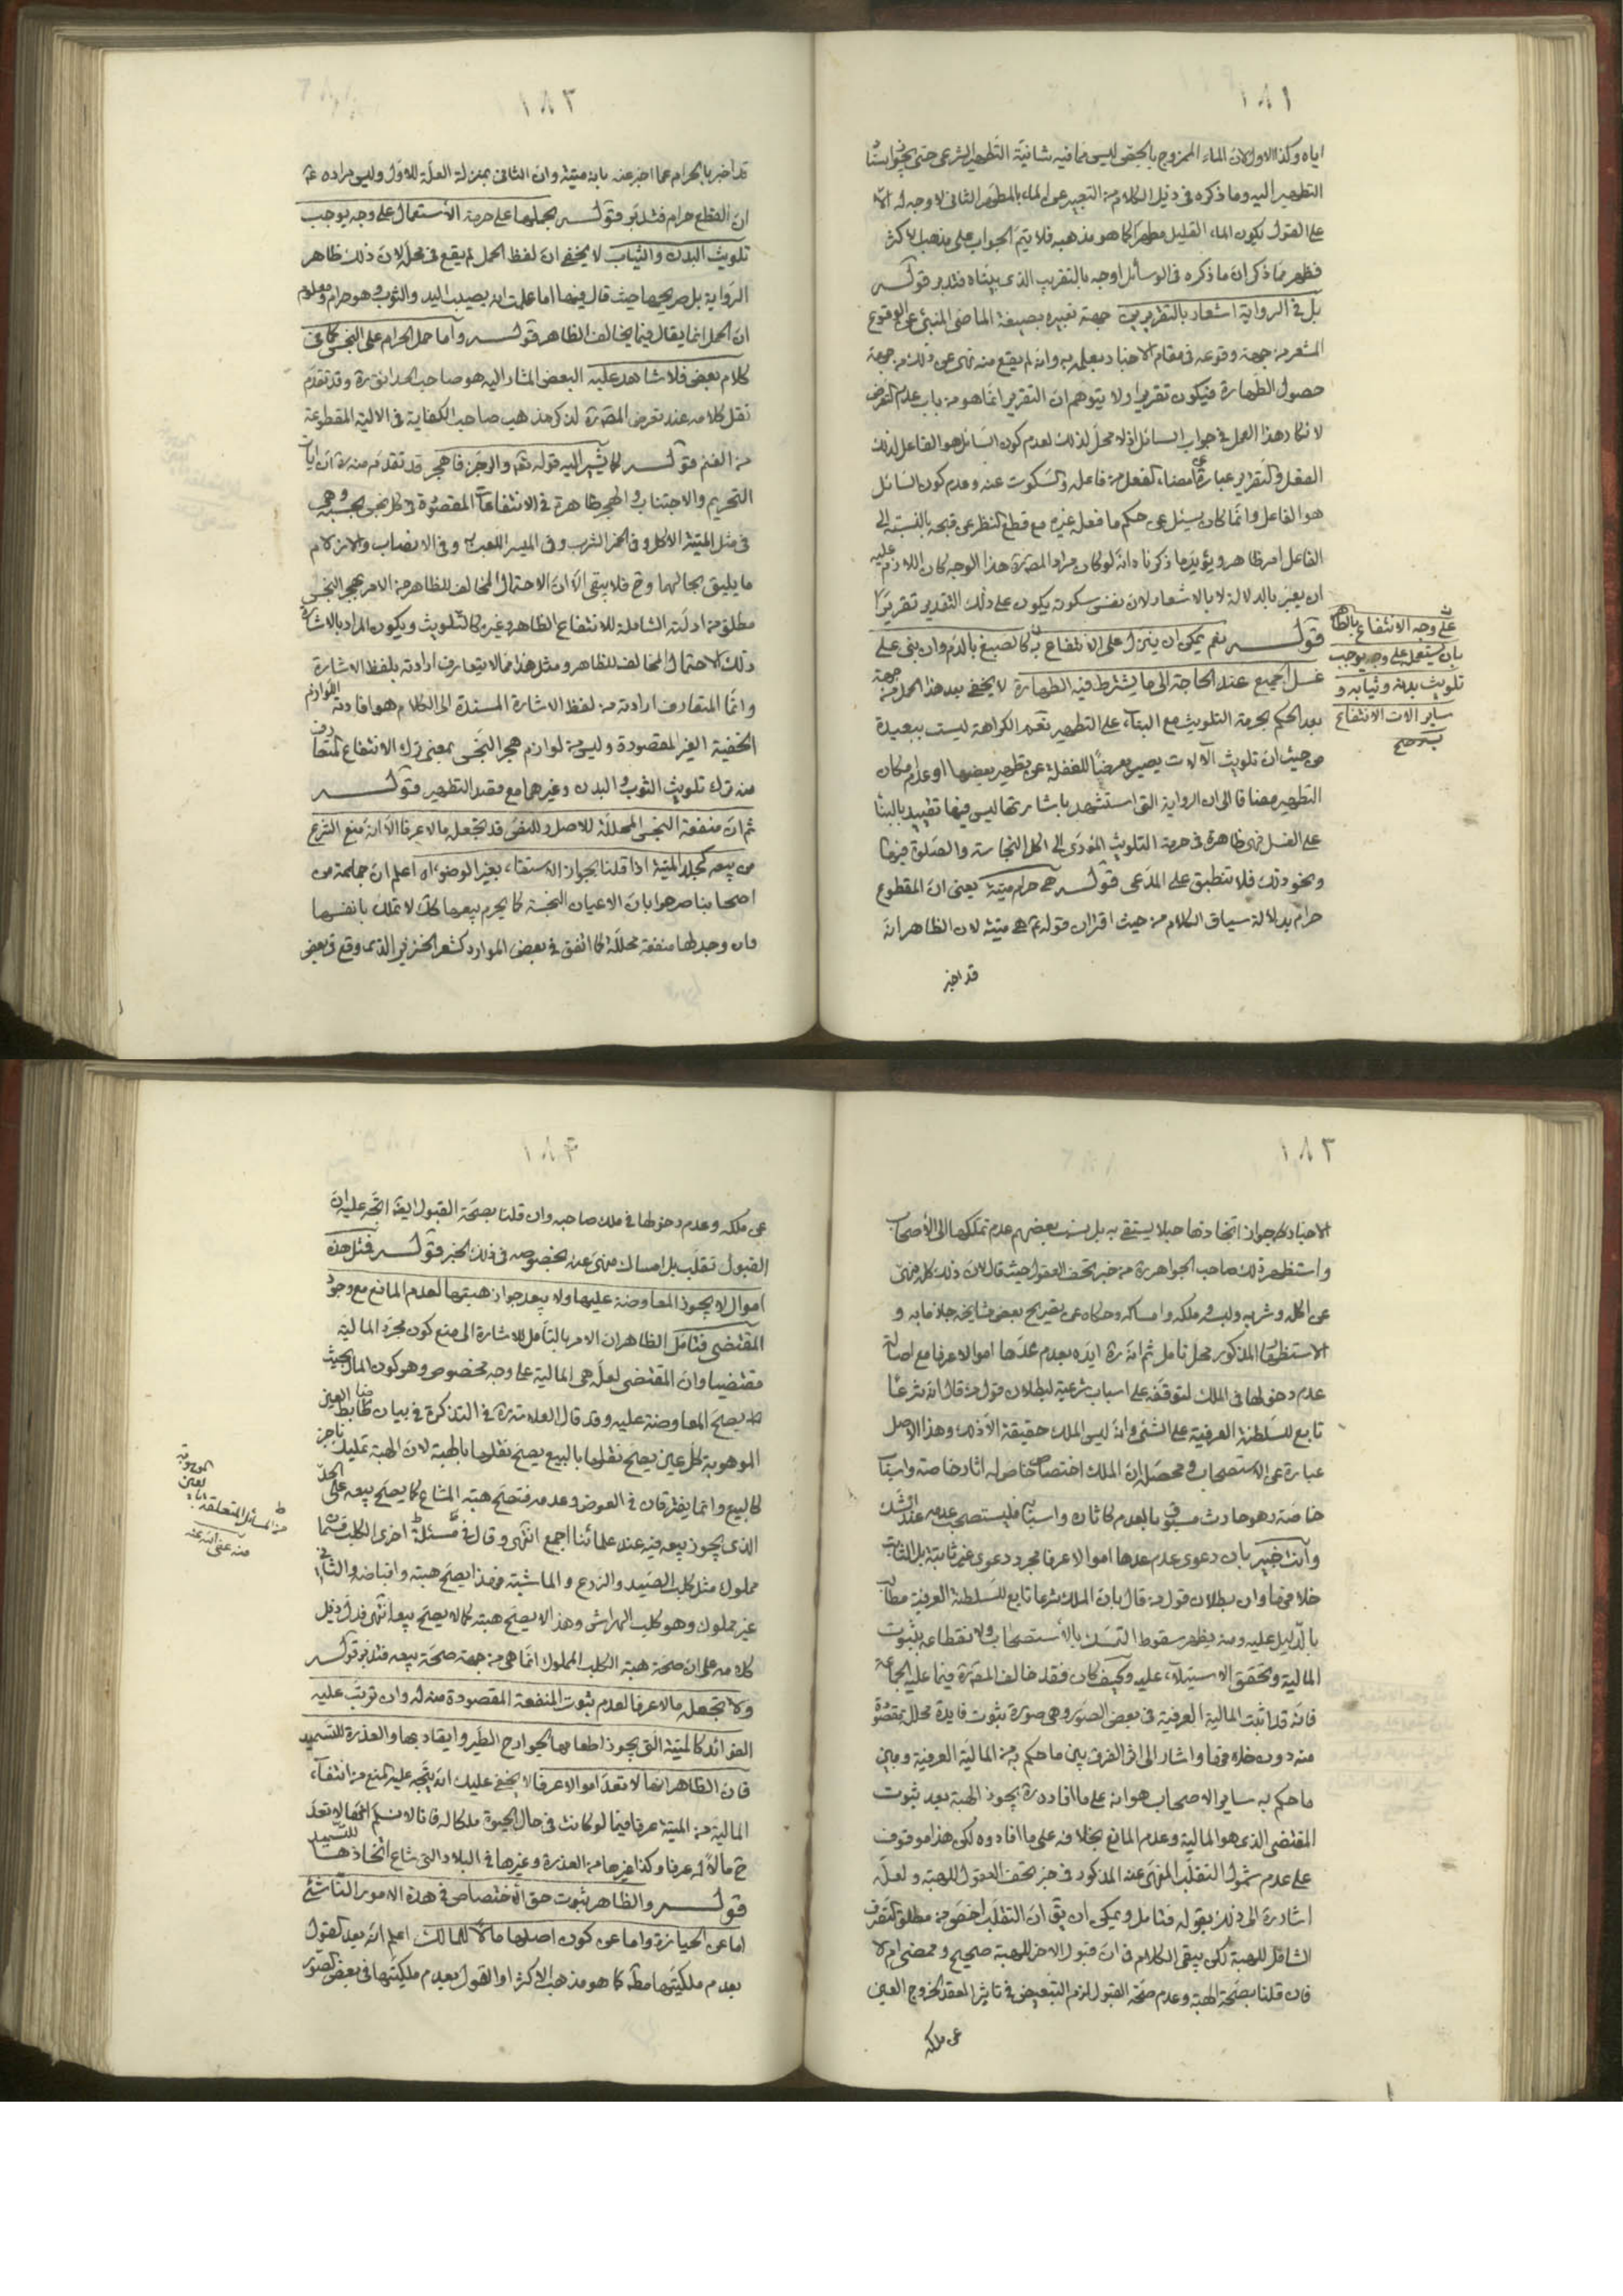 ١٨١
اياه وكذا الاول لان الماء الممزوج بالجص ليس مما فيه شانية التطهير الشرعى حتى يجوز استناد
التطهير اليه وما ذكره فى ذيل الكلام من التعبير عن الماء بالمطهر الثانى لا وجه له الا
على القول بكون الماء القليل مطهرا كما هو مذهبه فلا يتم الجواب على مذهب الاكثر
فظهر مما ذكر ان ما ذكره فى الوسائل اوجه بالتقريب الذى بيناه فتدبر قوله
بل فى الرواية اشعار بالتقرير من جهة تعبيره بصيغة الماضى المنبئ عن الوقوع
المشعر من جهة وقوعه فى مقام الاخبار بعلمه به وانه لم يقع منه نهى عن ذلك من جهة
حصول الطهارة فيكون تقريرا ولا يتوهم ان التقرير انما هو من باب عدم التعرض
لانكار هذا العمل فى جواب السائل اذ لا محل لذلك لعدم كون السائل هو الفاعل لذلك
الفعل والتقرير عبارة عن امضاء الفعل من فاعله والسكوت عنه وعدم كون السائل
هو الفاعل وانما كان يسئل عن حكم ما فعله غيره مع قطع النظر عن قبحه بالنسبة الى
الفاعل امر ظاهر ويؤيد ما ذكرناه انه لو كان مراد المصنف ره هذا الوجه كان اللازم عليه
ان يعبر بالدلالة لا بالاشعار لان نفس سكوته يكون على ذلك التقدير تقريرا
قوله نعم يمكن ان ينزل على الانتفاع به كالصبغ بالدم وان بنى على
غسل الجميع عند الحاجة الى ما يشترط فيه الطهارة لا يخفى بعد هذا الحمل من جهة
بعد الحكم بحرمة التلويث مع البناء على التطهير نعم الكراهة ليست ببعيدة
من حيث ان تلويث الآلات يصير معرضا للغفلة عن تطهير بعضها او عدم مكان
التطهير مضافا الى ان الرواية التى استشهد باشارتها ليس فيها تقييد بالبناء
على الغسل فهى ظاهرة فى حرمة التلويث المؤدى الى اكل النجاسة والصلوة فيها
ونحو ذلك فلا تنطبق على المدعى قوله هى حرام ميتة يعنى ان المقطوع
حرام بدلالة سياق الكلام من حيث اقتران قوله ع هى ميتة لان الظاهر انه
قد اخبر
على وجه الانتفاع بالطاهر
بان يستعمله على وجه يوجب
تلويث بدنه وثيابه و
ساير آلات الانتفاع
به صح
١٨٢
قد اخبر بالحرام عما اخبر عنه بانه ميتة وان الثانى بمنزلة العلة للاول وليس مراده ع
ان القطع حرام فتدبر قوله بحملها على حرمة الاستعمال على وجه يوجب
تلويث البدن والثياب لا يخفى ان لفظ الحمل لم يقع فى محله لان ذلك ظاهر
الرواية بل صريحها حيث قال فيها اما علمت انه يصيب اليد والثوب وهو حرام ومعلوم
ان الحمل انما يقال فيما يخالف الظاهر قوله واما حمل الحرام على النجس كما فى
كلام بعض فلا شاهد عليه البعض المشار اليه هو صاحب الحدائق ره وقد تقدم
نقل كلامه عند تعرض المصنف ره لذكر مذهب صاحب الكفاية فى الالية المقطوعة
من الغنم قوله كما يشير اليه قوله تع والرجز فاهجر قد تقدم منه ره ان ايات
التحريم والاجتناب والهجر ظاهرة فى الانتفاعات المقصودة فى كل نجس بحسبه وهى
فى مثل الميتة الاكل وفى الخمر الشرب وفى الميسر اللعب به وفى الانصاب والازلام
ما يليق بحالهما وح فلا يبقى الا ان الاحتمال المخالف للظاهر من الامر بهجر النجس
مطلق من ادلته الشاملة للانتفاع الظاهر وغيره كالتلويث ويكون المراد بالاشارة
ذلك الاحتمال المخالف للظاهر ومثل هذا مما لا يتعارف ارادته بلفظ الاشارة
وانما المتعارف ارادته من لفظ الاشارة المسندة الى الكلام هو افادته اللوازم
الخفية الغير المقصودة وليس من لوازم هجر النجس بمعنى ترك الانتفاع المتعارف
منه ترك تلويث الثوب والبدن وغيرهما مع قصد التطهير قوله
ثم ان منفعة النجس المحللة للاصل وللنص قد تجعله مالا عرفا الا انه منع الشرع
من بيعه كجلد الميتة اذا قلنا بجواز الاستقاء بغير الوضوء اه اعلم ان جماعة من
اصحابنا صرحوا بان الاعيان النجسة كما يحرم بيعها كك لا تملك بانفسها
وان وجد لها منفعة محللة كما اتفق فى بعض الموارد كشعر الخنزير الذى وقع فى بعض
١٨٣
الاخبار جواز اتخاذها حبلا يستقى به بل نسب بعضهم عدم تملكها الى الأصحاب
واستظهر ذلك صاحب الجواهر ره من خبر تحف العقول حيث قال لان ذلك كله منهى
عن اكله وشربه ولبسه وملكه وامساكه وحكاه عن تصريح بعض مشايخه جازما به و
الاستظهار المذكور محل تامل ثم انه ره ايده بعدم عدها اموالا عرفا مع اصالة
عدم دخولها فى الملك لتوقفه على اسباب شرعية لبطلان قول من قال انه شرعا
تابع للسلطنة العرفية على الشئ وانه ليس الملك حقيقة الا ذلك وهذا الاصل
عبارة عن الاستصحاب ومحصله ان الملك اختصاص خاص له اثار خاصة واسباب
خاصة وهو حادث مسبوق بالعدم كاثاره واسبابه فيستصحب عدمه عند الشك
وأنت خبير بان دعوى عدم عدها اموالا عرفا مجرد دعوى غير ثابتة بل الثابت
خلافها وان بطلان قول من قال بان الملك شرعا تابع للسلطنة العرفية مطالب
بالدليل عليه ومنه يظهر سقوط التمسك بالاستصحاب ولانقطاعه بثبوت
المالية وتحقق الاستيلاء عليه وكيف كان فقد خالف المصنف ره فيما عليه الجماعة
فانه قد اثبت المالية العرفية فى بعض الصور وهى صورة ثبوت فايدة محللة مقصودة
منه دون خلافها واشار الى اثر الفرق بين ما حكم به من المالية العرفية وبين
ما حكم به ساير الاصحاب هو انه على ما افاده ره يجوز الهبة بعد ثبوت
المقتضى الذى هو المالية وعدم المانع بخلافه على ما افادوه لكن هذا موقوف
على عدم شمول التقلب المنهى عنه المذكور فى خبر تحف العقول للهبة ولعله
اشار ره الى ذلك بقوله فتامل ويمكن ان يق ان التقلب اخص من مطلق التصرف
الشامل للهبة لكن يبقى الكلام فى ان قبول الاخر للهبة صحيح وممضى ام لا
فان قلنا بصحة الهبة وعدم صحة القبول لزم التبعيض فى تاثير العقد لخروج العين
عن ملكه
١٨٤
عن ملكه وعدم دخولها فى ملك صاحبه وان قلنا بصحة القبول ايضا اتجه عليه ان
القبول تقلب بل امساك منهى عنه بخصوصه فى ذلك الخبر قوله فمثل هذه
اموال لا يجوز المعاوضة عليها ولا يبعد جواز هبتها لعدم المانع مع وجود
المقتضى فتامل الظاهر ان الامر بالتأمل للاشارة الى منع كون مجرد المالية
مقتضيا وان المقتضى لعله هى المالية على وجه مخصوص وهو كون المال بحيث
يصح المعاوضة عليه وقد قال العلامة ره فى التذكرة فى بيان ضابط العين
الموهوبة كل عين يصح نقلها بالبيع يصح نقلها بالهبة لان الهبة تمليك ناجز
كالبيع وانما يفترقان فى العوض وعدمه فتصح هبة المشاع كما يصح بيعه على الحد
الذى يجوز بيعه فيه عند علمائنا اجمع انتهى وقال فى مسئلة اخرى الكلب قسمان
مملوك مثل كلب الصيد والزرع والماشية فهذا يصح هبته واقباضه والثانى
غير مملوك وهو كلب الهراش وهذا لا يصح هبته كما لا يصح بيعه انتهى فدل ذيل
كلامه على ان صحة هبة الكلب المملوك انما هى من جهة صحة بيعه فتدبر قوله
ولا تجعله مالا عرفا لعدم ثبوت المنفعة المقصودة منه له وان ترتب عليه
الفوائد كالميتة التى يجوز اطعامها لجوارح الطير وايقاد بها والعذرة للتسميد
فان الظاهر انها لا تعد اموالا عرفا لا يخفى عليك انه يتجه عليه المنع من انتفاء
المالية من الميتة عرفا فيما لو كانت فى حال الحيوة ملكا له فانا لا نسلم انها لا تعد
ح مالا له عرفا وكذا غيرها من العذرة وغيرها فى البلاد التى شاع اتخاذها للتسميد
قوله والظاهر ثبوت حق الاختصاص فى هذه الامور الناشئ
اما عن الحيازة واما عن كون اصلها مالا للمالك اعلم انه بعد القول
بعدم ملكيتها مطلقا كما هو مذهب الاكثر او القول بعدم ملكيتها فى بعض الصور
من المسائل المتعلقة
منه عفى الله عنه